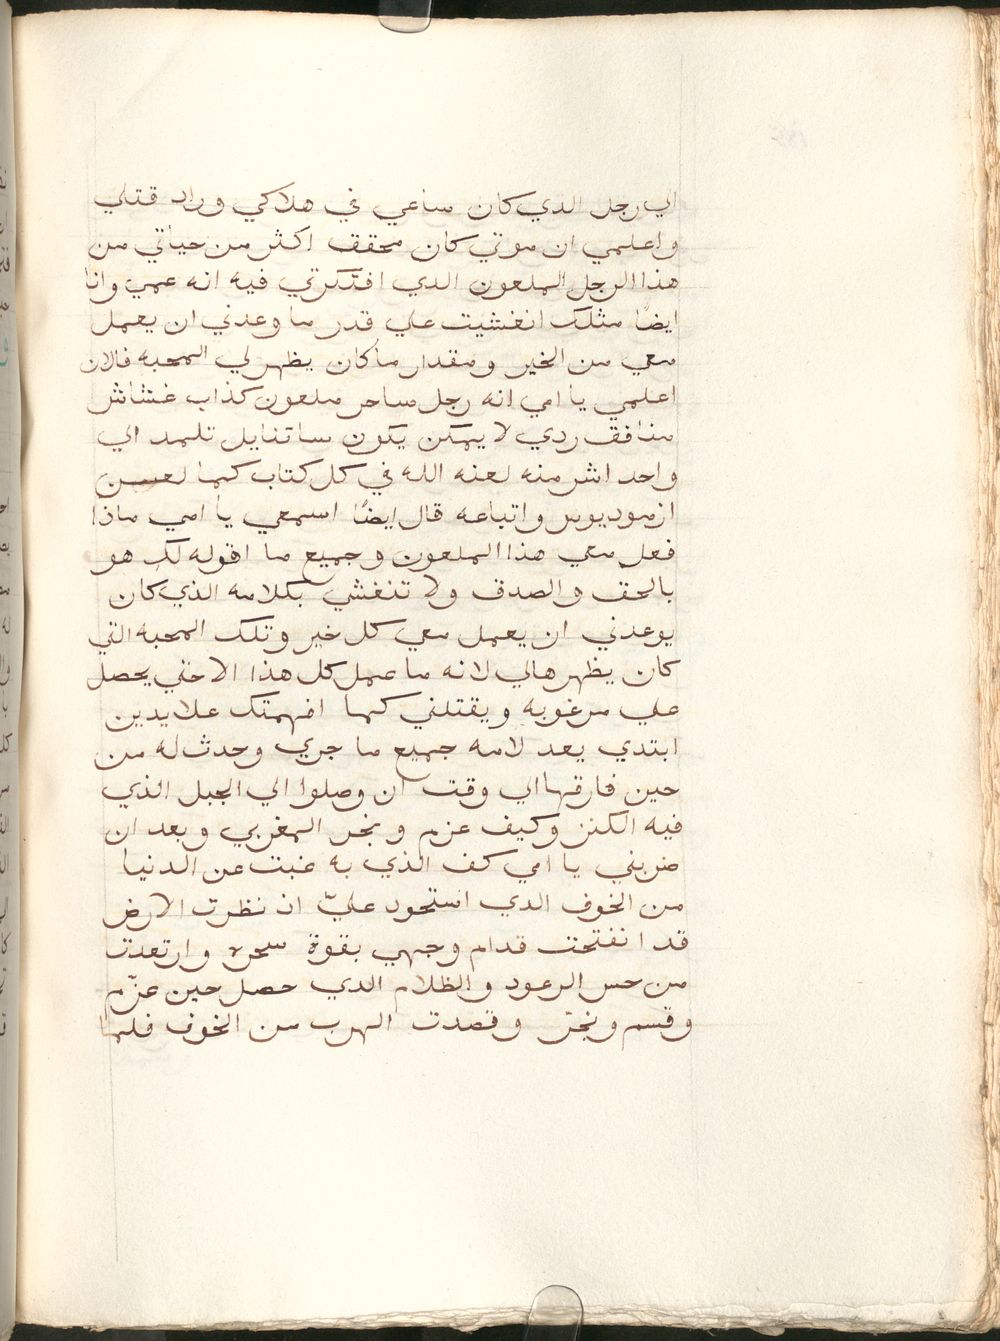 الي رجل الذي كان ساعي في هلاكي وراد قتلي
واعلمي ان موتي كان محقق اكثر من حياتي من
هذا الرجل الملعون الذي افتكرتي فيه انه عمي وانا
ايضًا مثلك انغشيت علي قدر ما وعدني ان يعمل
معي من الخير ومقدار ما كان يظهر لي المحبه فالان
اعلمي يا امي انه رجل ساحر ملعون كذاب غشاش
منافق ردي لا يمكن يكون ساتنايل تلمد الي
واحد اشر منه لعنه الله في كل كتاب كما لعن
ازموديوس واتباعه قال ايضًا اسمعي يا امي ماذا
فعل معي هذا الملعون وجميع ما اقوله لك هو
بالحق والصدق ولا تنغشي بكلامه الذي كان
يوعدني ان يعمل معي كل خير وتلك المحبه التي
كان يظهرها لي لانه ما عمل كل هذا الا حتي يحصل
علي مرغوبه ويقتلني كما افهمتك علايدين
ابتدي يعد لامه جميع ما جري وحدث له من
حين فارقها الي وقت ان وصلوا الي الجبل الذي
فيه الكنز وكيف عزم وبخر المغربي وبعد ان
ضربني يا امي كف الذي به غبت عن الدنيا
من الخوف الذي استحود عليّ اذ نظرت الارض
قد انفتحت قدام وجهي بقوة سحره وارتعدت
من حس الرعود والظلام الذي حصل حين عزّم
وقسم وبخّر وقصدت الهرب من الخوف فلما